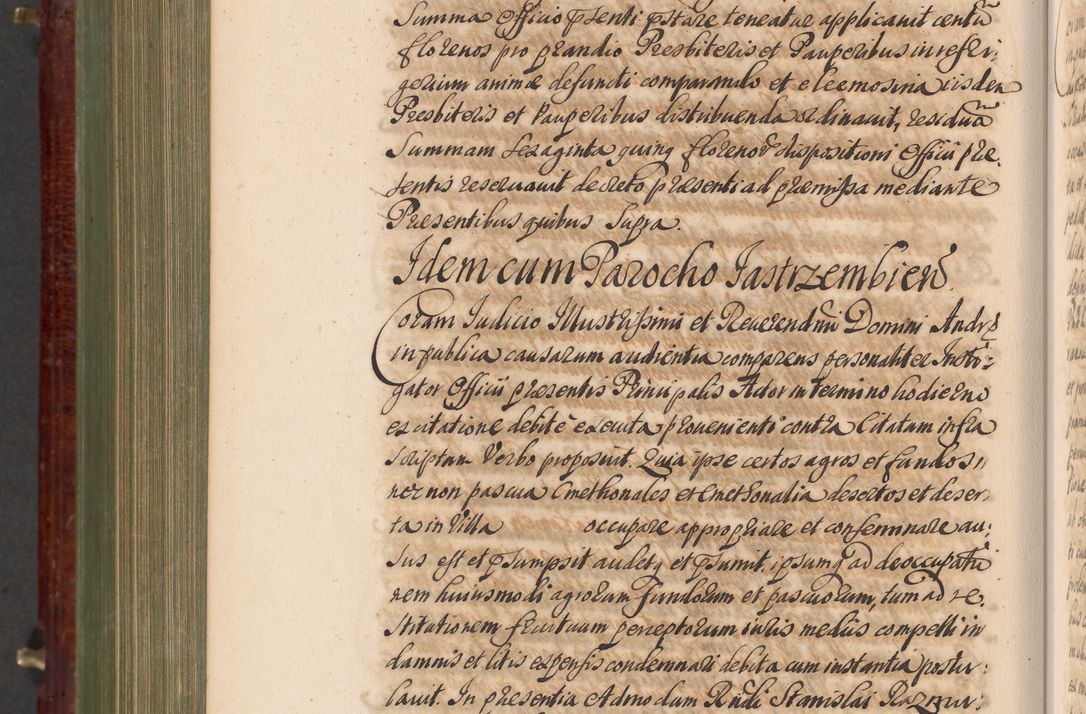 Summa Officio psenti pstare teneatur applicavit centū
florenos pro prandio Presbiteris et Pauperibus in refri,
gerium animæ defuncti comparando et eleemosina iisdem
Presbiteris et Pauperibus distribuenda ordinavit, residuā
Summam sexaginta quinq florenor dispositioni Officii præ,
sentis reservavit decreto præsenti ad præmissa mediante
Præsentibus quibus Supra.
Idem cum Parocho Jastrzembien
Coram Judicio Illustrissimi et Reverendmi Domini Andr
in publica causarum audientia comparens personaliter Insti:
gator Officii præsentis Principalis Actor in termino hodierno
ex citatione debite executa provenienti contra Citatum infra
scriptum Verbo proposuit. Quia ipse certos agros et fundos
nec non pascua Cmethonales et Cmethonalia desertos et deser,
ta in Villa occupare appropriare et conseminare au:
sus est et psumpsit audetq et psumit, ipsumq ad deoccupatio
nem huiusmodi agrorum fundorum et pascuorum, tum ad re,
stitutionem fructuum perceptorum iuris mediis compelli in
damnis et litis expensis condemnari debita cum instantia postu:
lavit. In præsentia Admodum Rndi Stanislai Razmu: